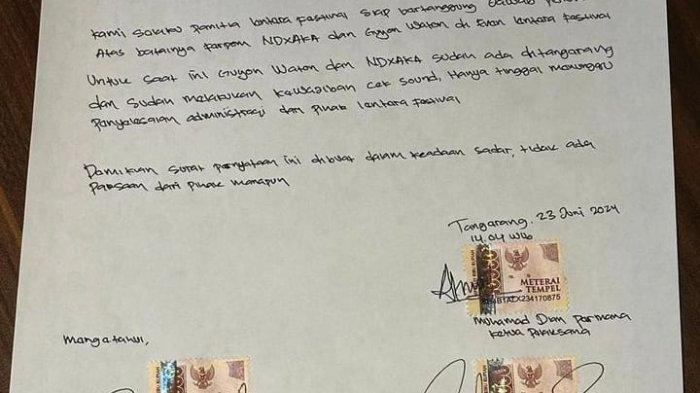 Kami Selaku Panitia lentara Festival Siap bertanggung Jawab
Atas batalnya Perfom NDXAKA dan Guyon Waton di Evan lentara Festival
Untuk saat ini Guyon Waton dan NDXAKA Sudah ada ditangerang
dan Sudah melakukan Kewajiban Cek Sound, Hanya tinggal menunggu
Penyelesaian administrasi dari Pihak lentara Festival
Demikian Surat Pernyataan ini dibuat dalam keadaan Sadar, tidak ada
Paksaan dari Pihak manapun
Tangerang, 23 Juni 2024
14.04 Wib
10000
METERAI
TEMPEL
234170875
Muhamad Dian Permana
Ketua Pelaksana
Mengetahui,